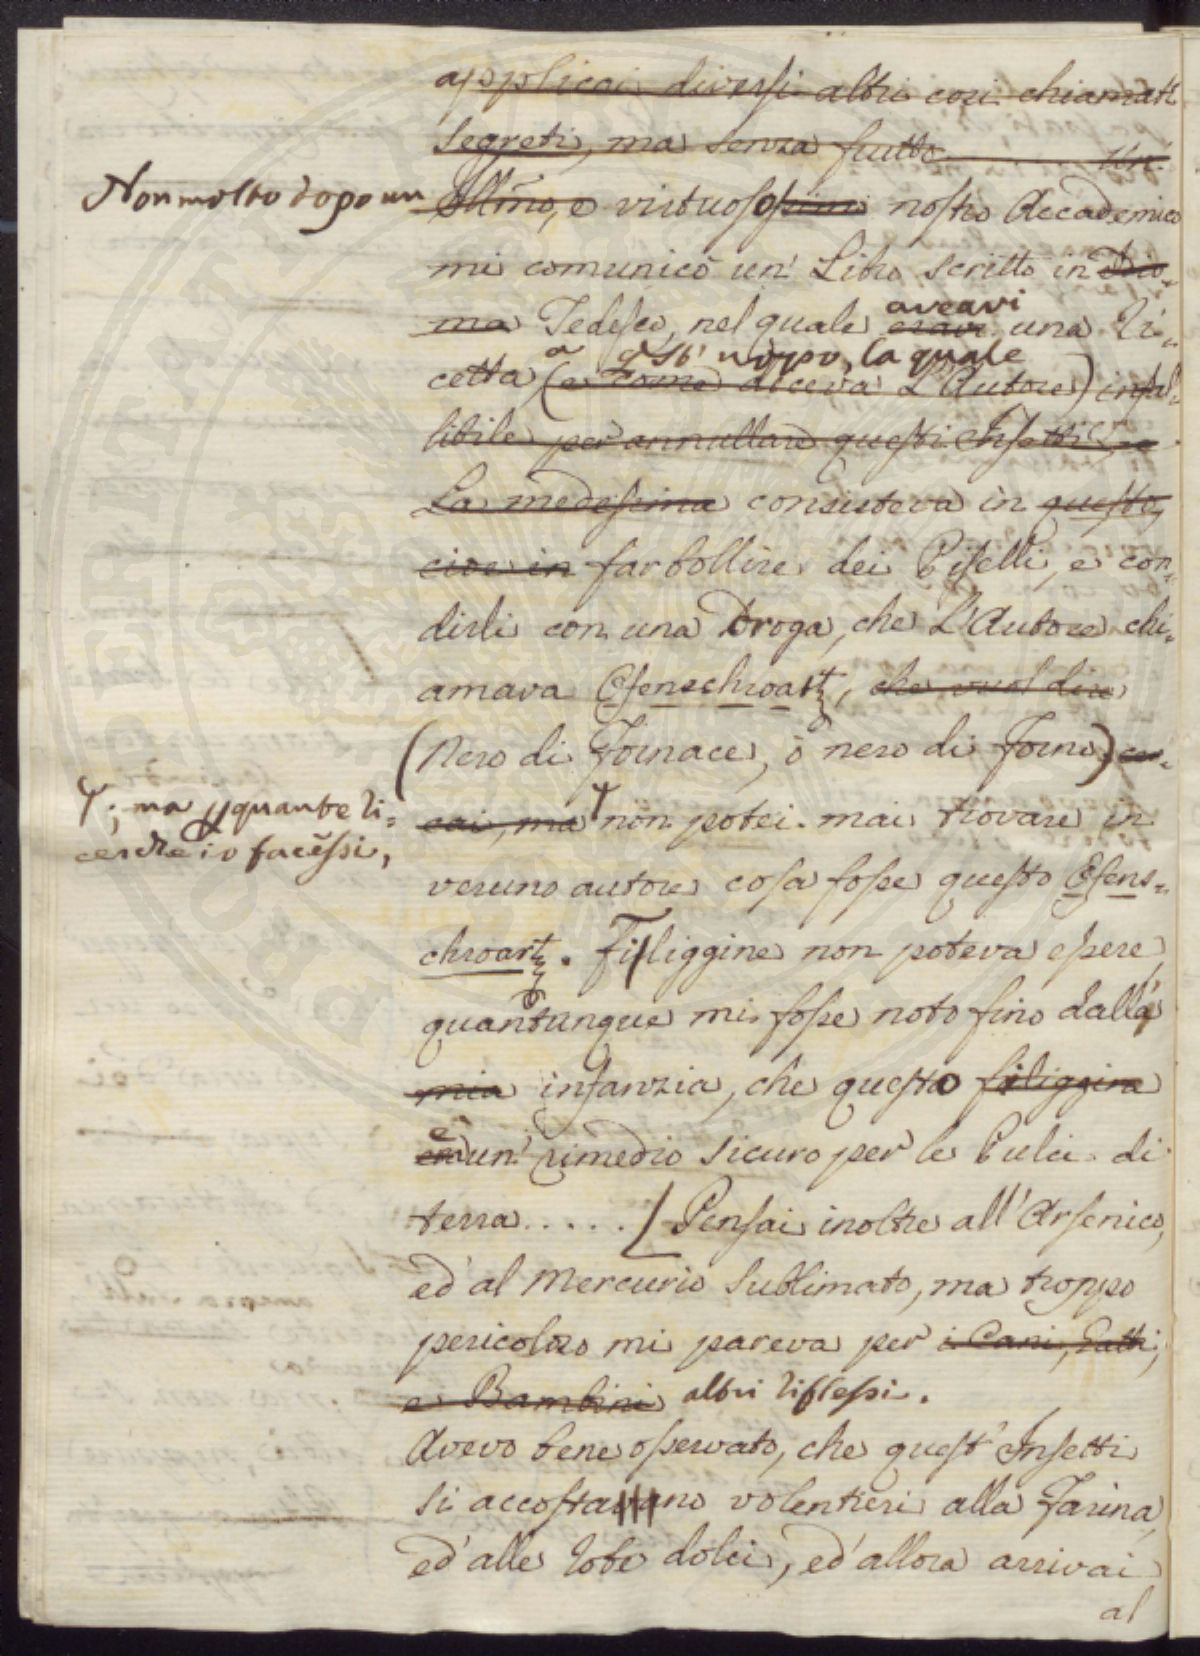 applicai diversi altri cosi chiamati
segreti, ma senza frutto. Un'
Non molto dopo un
Illmo, e virtuosissimo nostro Accademico
mi comunicò un' Libro scritto in Idio-
ma Tedesco, nel quale eravi una Ri-
aveavi
cetta (e come diceva L'Autore) infal-
a qsto' uopo, la quale
libile per annullare questi Insetti, e
La medesima consisteva in questo,
cioè in far bollire dei Piselli, e con-
dirli con una Droga, che L'Autore chi-
amava Ofenschwartz, che vuol dire
(Nero di Fornace, ò nero di Forno) cer-
cai, ma non potei mai trovare in
; ma p quante ri-
cerche io facessi,
veruno autore cosa fosse questo Ofens-
chwartz. Filiggine non poteva essere,
quantunque mi fosse noto fino dall'
mia infanzia, che questo filiggine
era un' rimedio sicuro per le Pulci di
è
terra ..... / Pensai inoltre all' Arsenico,
ed' al Mercurio Sublimato, ma troppo
pericoloso mi pareva per i Cani, Gatti,
e Bambini altri riflessi.
Avevo bene osservato, che quest' Insetti
si accostavano volentieri alla Farina,
ed' alle robe dolci, ed' allora arrivai
al